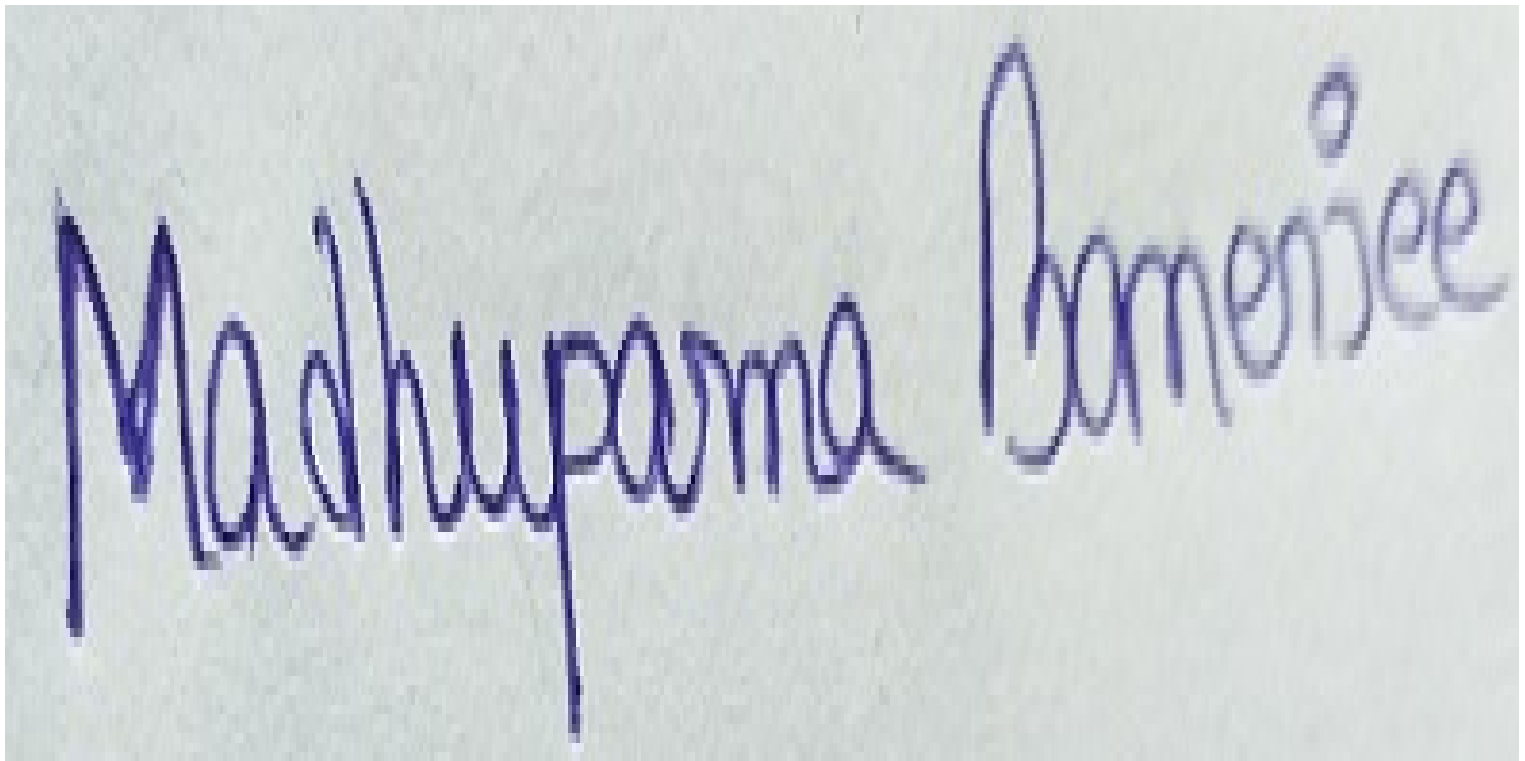 Madhuparna Banerjee